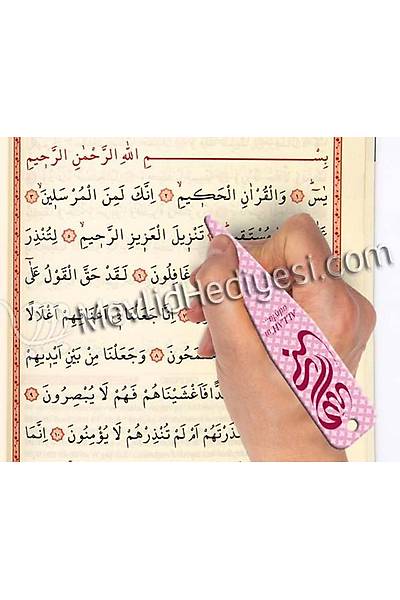 بِسْمِ اللّٰهِ الرَّحْمٰنِ الرَّحِيمِ
يٰسٓ ﴿١﴾ وَالْقُرْاٰنِ الْحَكِيمِ ﴿٢﴾ اِنَّكَ لَمِنَ الْمُرْسَلِينَ ﴿٣﴾
مُسْتَقِيمٍ ﴿٤﴾ تَنْزِيلَ الْعَزِيزِ الرَّحِيمِ ﴿٥﴾ لِتُنْذِرَ
غَافِلُونَ ﴿٦﴾ لَقَدْ حَقَّ الْقَوْلُ عَلٰٓى
اِنَّا جَعَلْنَا فٓى اَعْنَاقِهِمْ اَغْلَالًا
مُقْمَحُونَ ﴿٨﴾ وَجَعَلْنَا مِنْ بَيْنِ اَيْدِيهِمْ
سَدًّا فَاَغْشَيْنَاهُمْ فَهُمْ لَا يُبْصِرُونَ ﴿٩﴾
ءَاَنْذَرْتَهُمْ اَمْ لَمْ تُنْذِرْهُمْ لَا يُؤْمِنُونَ ﴿١٠﴾ اِنَّمَا
MevlidHediyesi.com